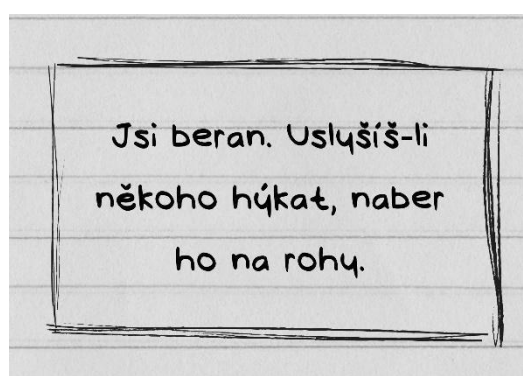 Jsi beran. Uslyšíš-li
někoho hýkat, naber
ho na rohy.